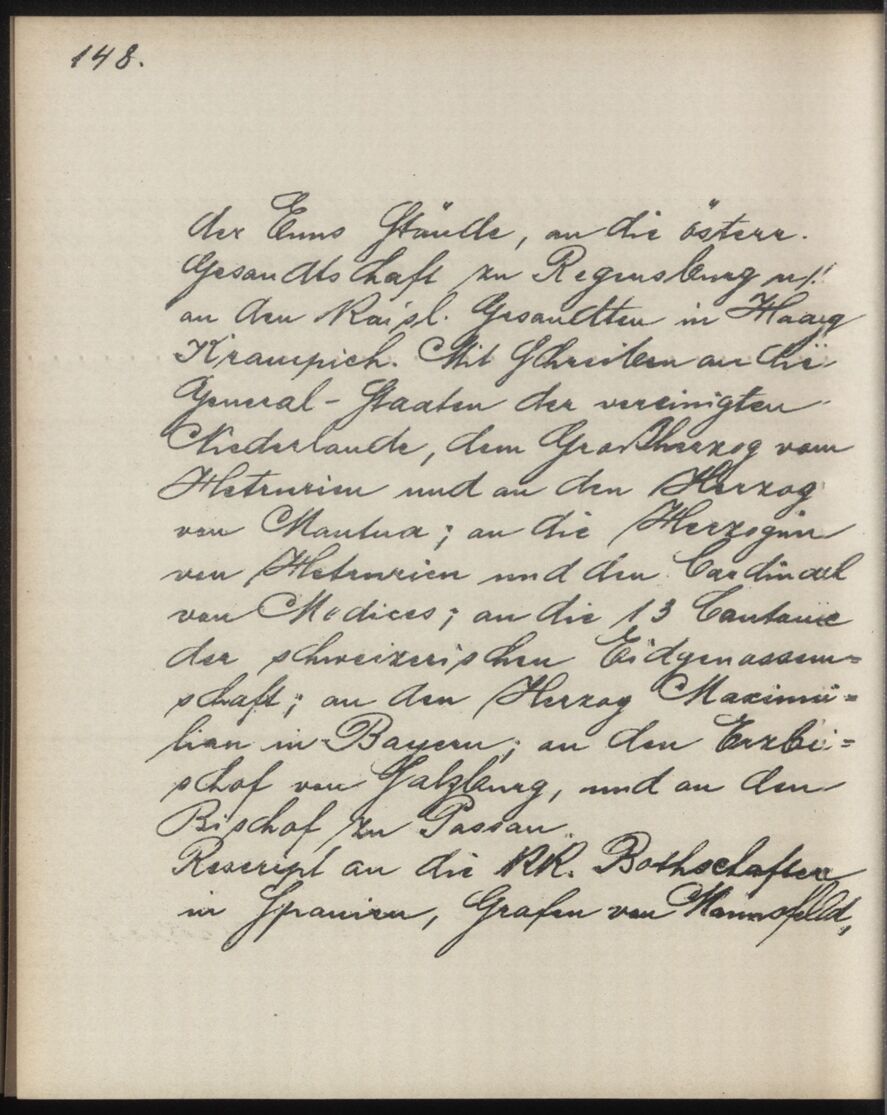 148.
der Enns Stände, an die österr.
Gesandtschaft zu Regensburg u/!
an den Kaisl. Gesandten in Haag
Krampich. Mit Schreiben an die
General-Staaten der vereinigten
Niederlande, dem Großherzog vom
Hetrurien und an den Herzog
von Mantua; an die Herzogin
von Hetrurien und den Cardinal
von Medices; an die 13 Cantone
der schweizerischen Eidgenossen=
schaft; an den Herzog Maximi=
lian in Bayern; an den Erzbi=
schof von Salzburg, und an den
Bischof zu Passau.
Rescript an die KK. Bothschafter
in Spanien, Grafen von Mannsfeld,